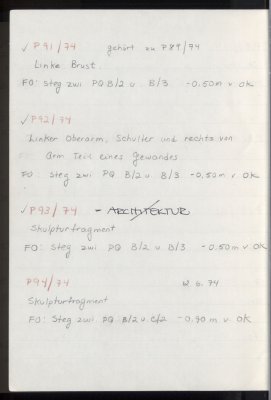 ✓ P91/74 gehört zu P89/74
Linke Brust.
FO: Steg zwi PQ B/2 u. B/3 -0.50m v OK
✓ P92/74
Linker Oberarm, Schulter und rechts von
Arm Teil eines Gewandes
FO: Steg zwi PQ B/2 u B/3 -0,50m v OK
✓ P93/74 - ARCHITEKTUR
Skulpturfragment
FO: Steg zwi PQ B/2 u B/3 -0.50m v OK
P94/74 6.74
Skulpturfragment
FO: Steg zwi PQ B/2 u C/2 -0,90 m v. OK